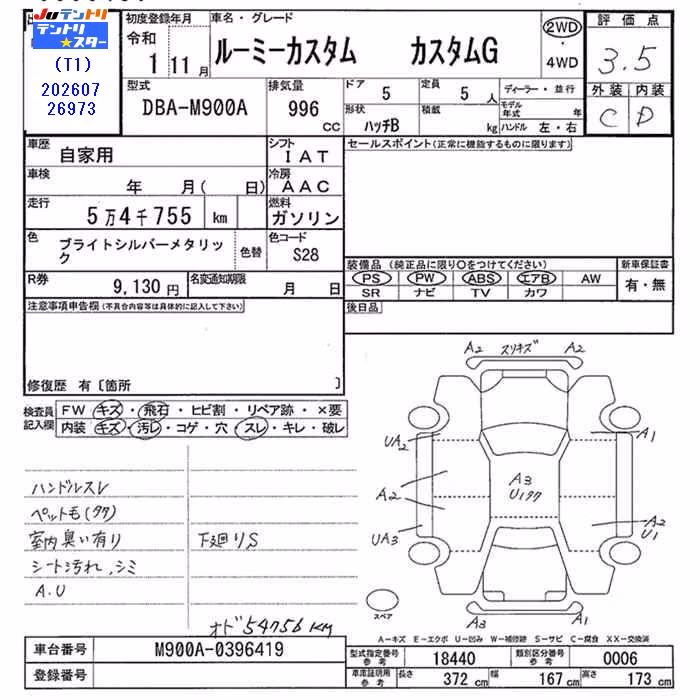 JUテントリ
テントリ★スター
(T1)
202607
26973
初度登録年月
令和
1 11月
車名・グレード
ルーミーカスタム カスタムG
2WD
・
4WD
評価点
3.5
外装 内装
C D
型式
DBA-M900A
排気量
996
cc
ドア 5
形状
ハッチB
定員 5人
積載
kg
ディーラー・並行
モデル年式 年
ハンドル 左・右
車歴 自家用
シフト IAT
車検 年 月( 日)
冷房 AAC
走行 5万4千755 km
燃料 ガソリン
色 ブライトシルバーメタリック
色替
色コード S28
R券 9,130円
名変通知期限 月 日
セールスポイント(正常に機能するものに限ります)
装備品(純正品に限り○をつけてください)
PS PW ABS エアB AW
SR ナビ TV カワ
新車保証書
有・無
後日品
注意事項申告欄(不具合内容等は具体的に記入して下さい)
修復歴 有〔箇所 〕
検査員記入欄
FW キズ・飛石・ヒビ割・リペア跡・×要
内装 キズ・汚レ・コゲ・穴・スレ・キレ・破レ
ハンドルスレ
ペット毛(タタ)
室内臭い有り
シート汚れ、シミ
A.U
下廻りS
オド54756KM
A2 スリキズ A2
UA2
A1
A3
U1タタ
A2
A2
U1
UA3
A3
A1
スペア
A-キズ E-エクボ U-凹み W-補修跡 S-サビ C-腐食 XX-交換済
車台番号 M900A-0396419
登録番号
型式指定番号参考 18440
類別区分番号参考 0006
車庫証明用参考 長さ 372cm 幅 167cm 高さ 173cm